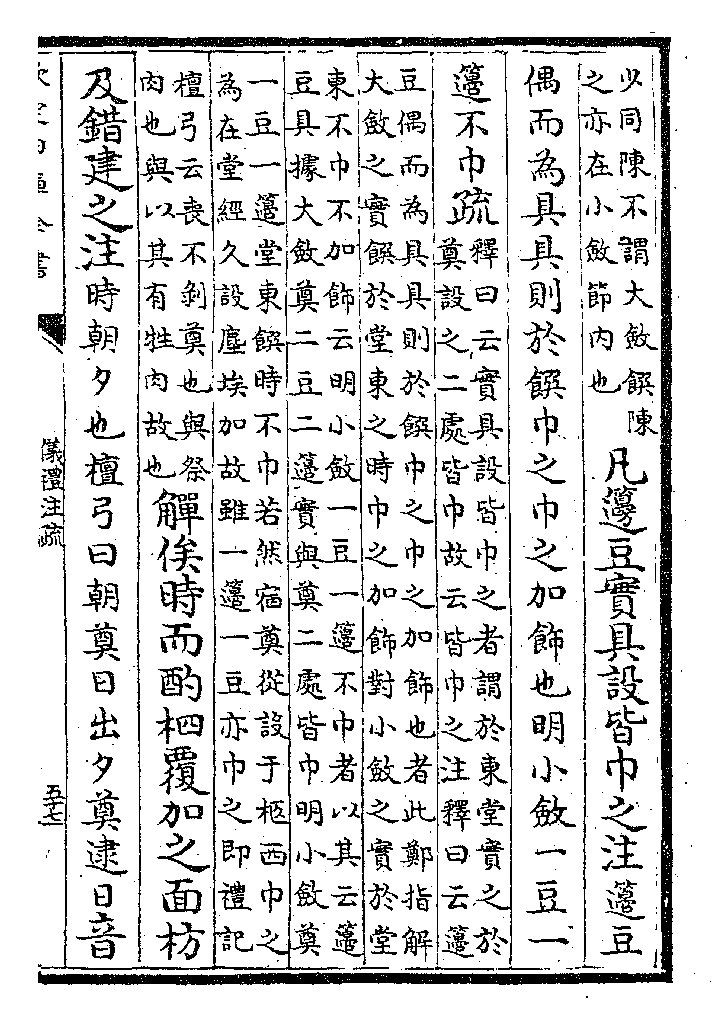 少同陳不謂大斂饌陳
之亦在小斂節内也
凡籩豆實具設皆巾之注籩豆
偶而為具具則於饌巾之巾之加飾也明小斂一豆一
籩不巾疏
釋曰云實具設皆巾之者謂於東堂實之於
奠設之二處皆巾故云皆巾之注釋曰云籩
豆偶而為具具則於饌巾之巾之加飾也者此鄭指解
大斂之實饌於堂東之時巾之加飾對小斂之實於堂
東不巾不加飾云明小斂一豆一籩不巾者以其云籩
豆具據大斂奠二豆二籩實與奠二處皆巾明小斂奠
一豆一籩堂東饌時不巾若然宿奠從設于柩西巾之
為在堂經久設塵埃加故雖一籩一豆亦巾之即禮記
檀弓云喪不剝奠也與祭
肉也與以其有牲肉故也
觶俟時而酌柶覆加之面枋
及錯建之注時朝夕也檀弓曰朝奠日出夕奠逮日音
欽定四庫全書
儀禮注疏
五十七